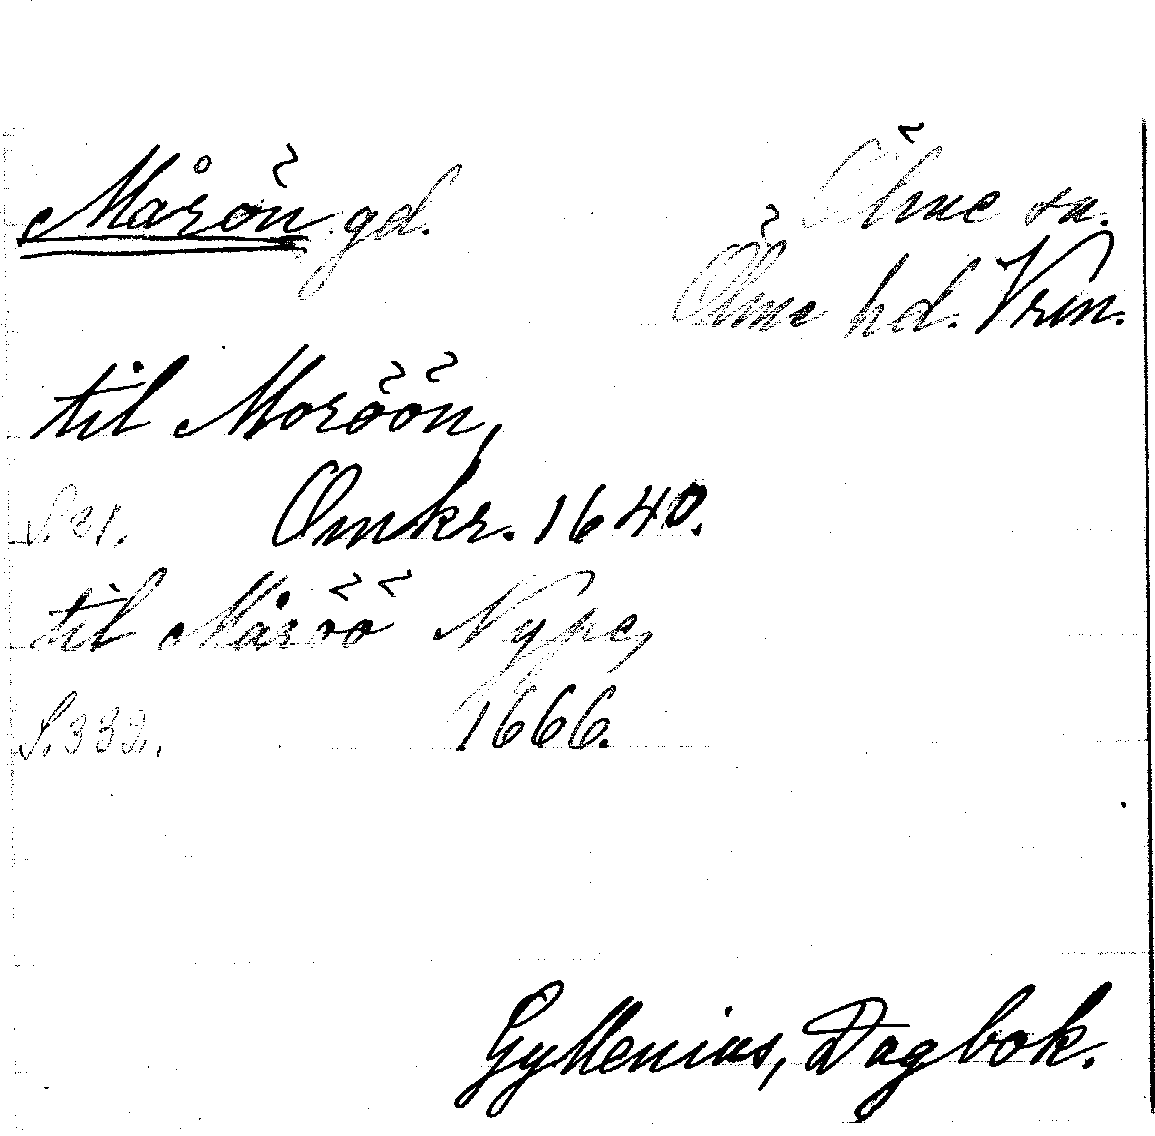 Mårön gd. Ölme sn.
Ölme hd. Vrm.
til Moröön,
S. 21. Omkr. 1640.
til Måröö Nype,
S. 332. 1666.
Gyllenius, Dagbok.